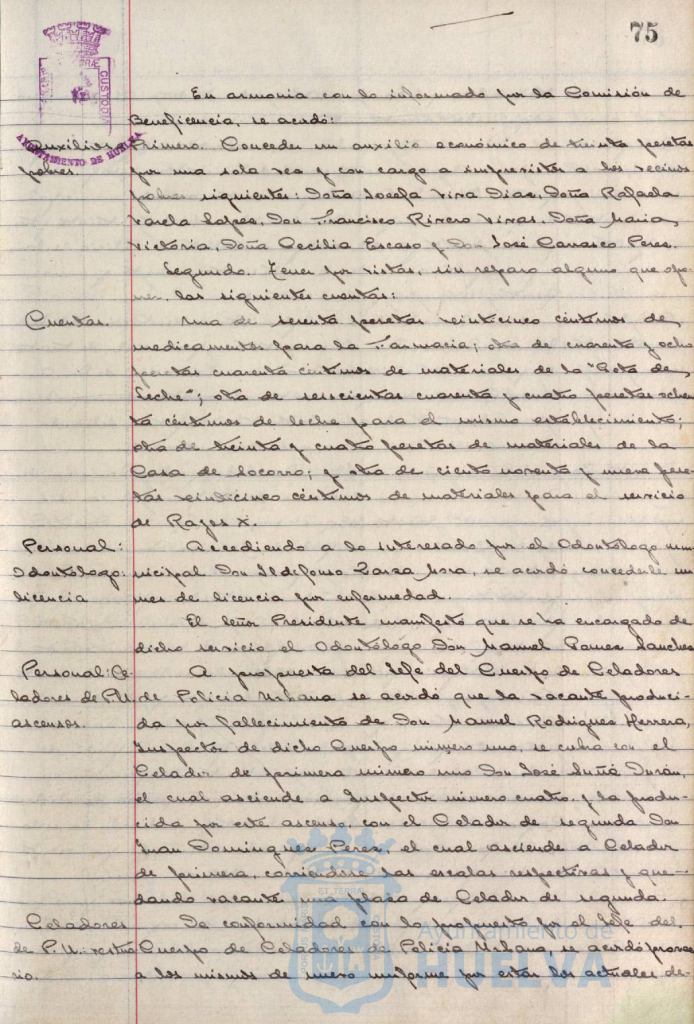 75
En armonia con lo informado por la Comisión de
Beneficencia, se acordó:
Auxilios Primero. Conceder un auxilio económico de treinta pesetas
pobres. por una sola vez y con cargo a imprevistos a los vecinos
pobres siguientes: Doña Josefa Viva Dias, Doña Rafaela
Varela Lopez, Don Francisco Rivero Vivas, Doña Maria
Victoria, Doña Cecilia Escaso y Don José Carrasco Perez.
Segundo. Tener por vistas, sin reparo alguno que opo-
ner, las siguientes cuentas:
Cuentas. Una de sesenta pesetas veinticinco céntimos de
medicamentos para la Farmacia; otra de cuarenta y ocho
pesetas cuarenta céntimos de materiales de la "Gota de
Leche"; otra de seiscientas cuarenta y cuatro pesetas ochen-
ta céntimos de leche para el mismo establecimiento;
otra de treinta y cuatro pesetas de materiales de la
Casa de Socorro; y otra de ciento noventa y nueve pese-
tas veinticinco céntimos de materiales para el servicio
de Rayos X.
Personal: Accediendo a lo interesado por el Odontólogo mu-
Odontólogo: nicipal Don Ildefonso Zarza Mora, se acordó concederle un
licencia mes de licencia por enfermedad.
El Señor Presidente manifestó que se ha encargado de
dicho servicio el Odontólogo Don Manuel Ponce Sanchez
Personal: Ce- A propuesta del Jefe del Cuerpo de Celadores
ladores de P.U. de Policía Urbana se acordó que la vacante produci-
ascensos. da por fallecimiento de Don Manuel Rodriguez Herrera,
Inspector de dicho Cuerpo número uno, se cubra con el
Celador de primera número uno Don José Suñé Durán,
el cual asciende a Inspector número cuatro, y la produ-
cida por este ascenso, con el Celador de segunda Don
Juan Dominguez Perez, el cual asciende a Celador
de primera, corriendose las escalas respectivas y que-
dando vacante una plaza de Celador de segunda.
Celadores De conformidad con lo propuesto por el Jefe del
de P.U. vestua- Cuerpo de Celadores de Policía Urbana, se acordó proveer
rio. a los mismos de nuevo uniforme por estar los actuales de-
AYUNTAMIENTO DE HUELVA
CUSTODIA
Ayuntamiento de
HUELVA